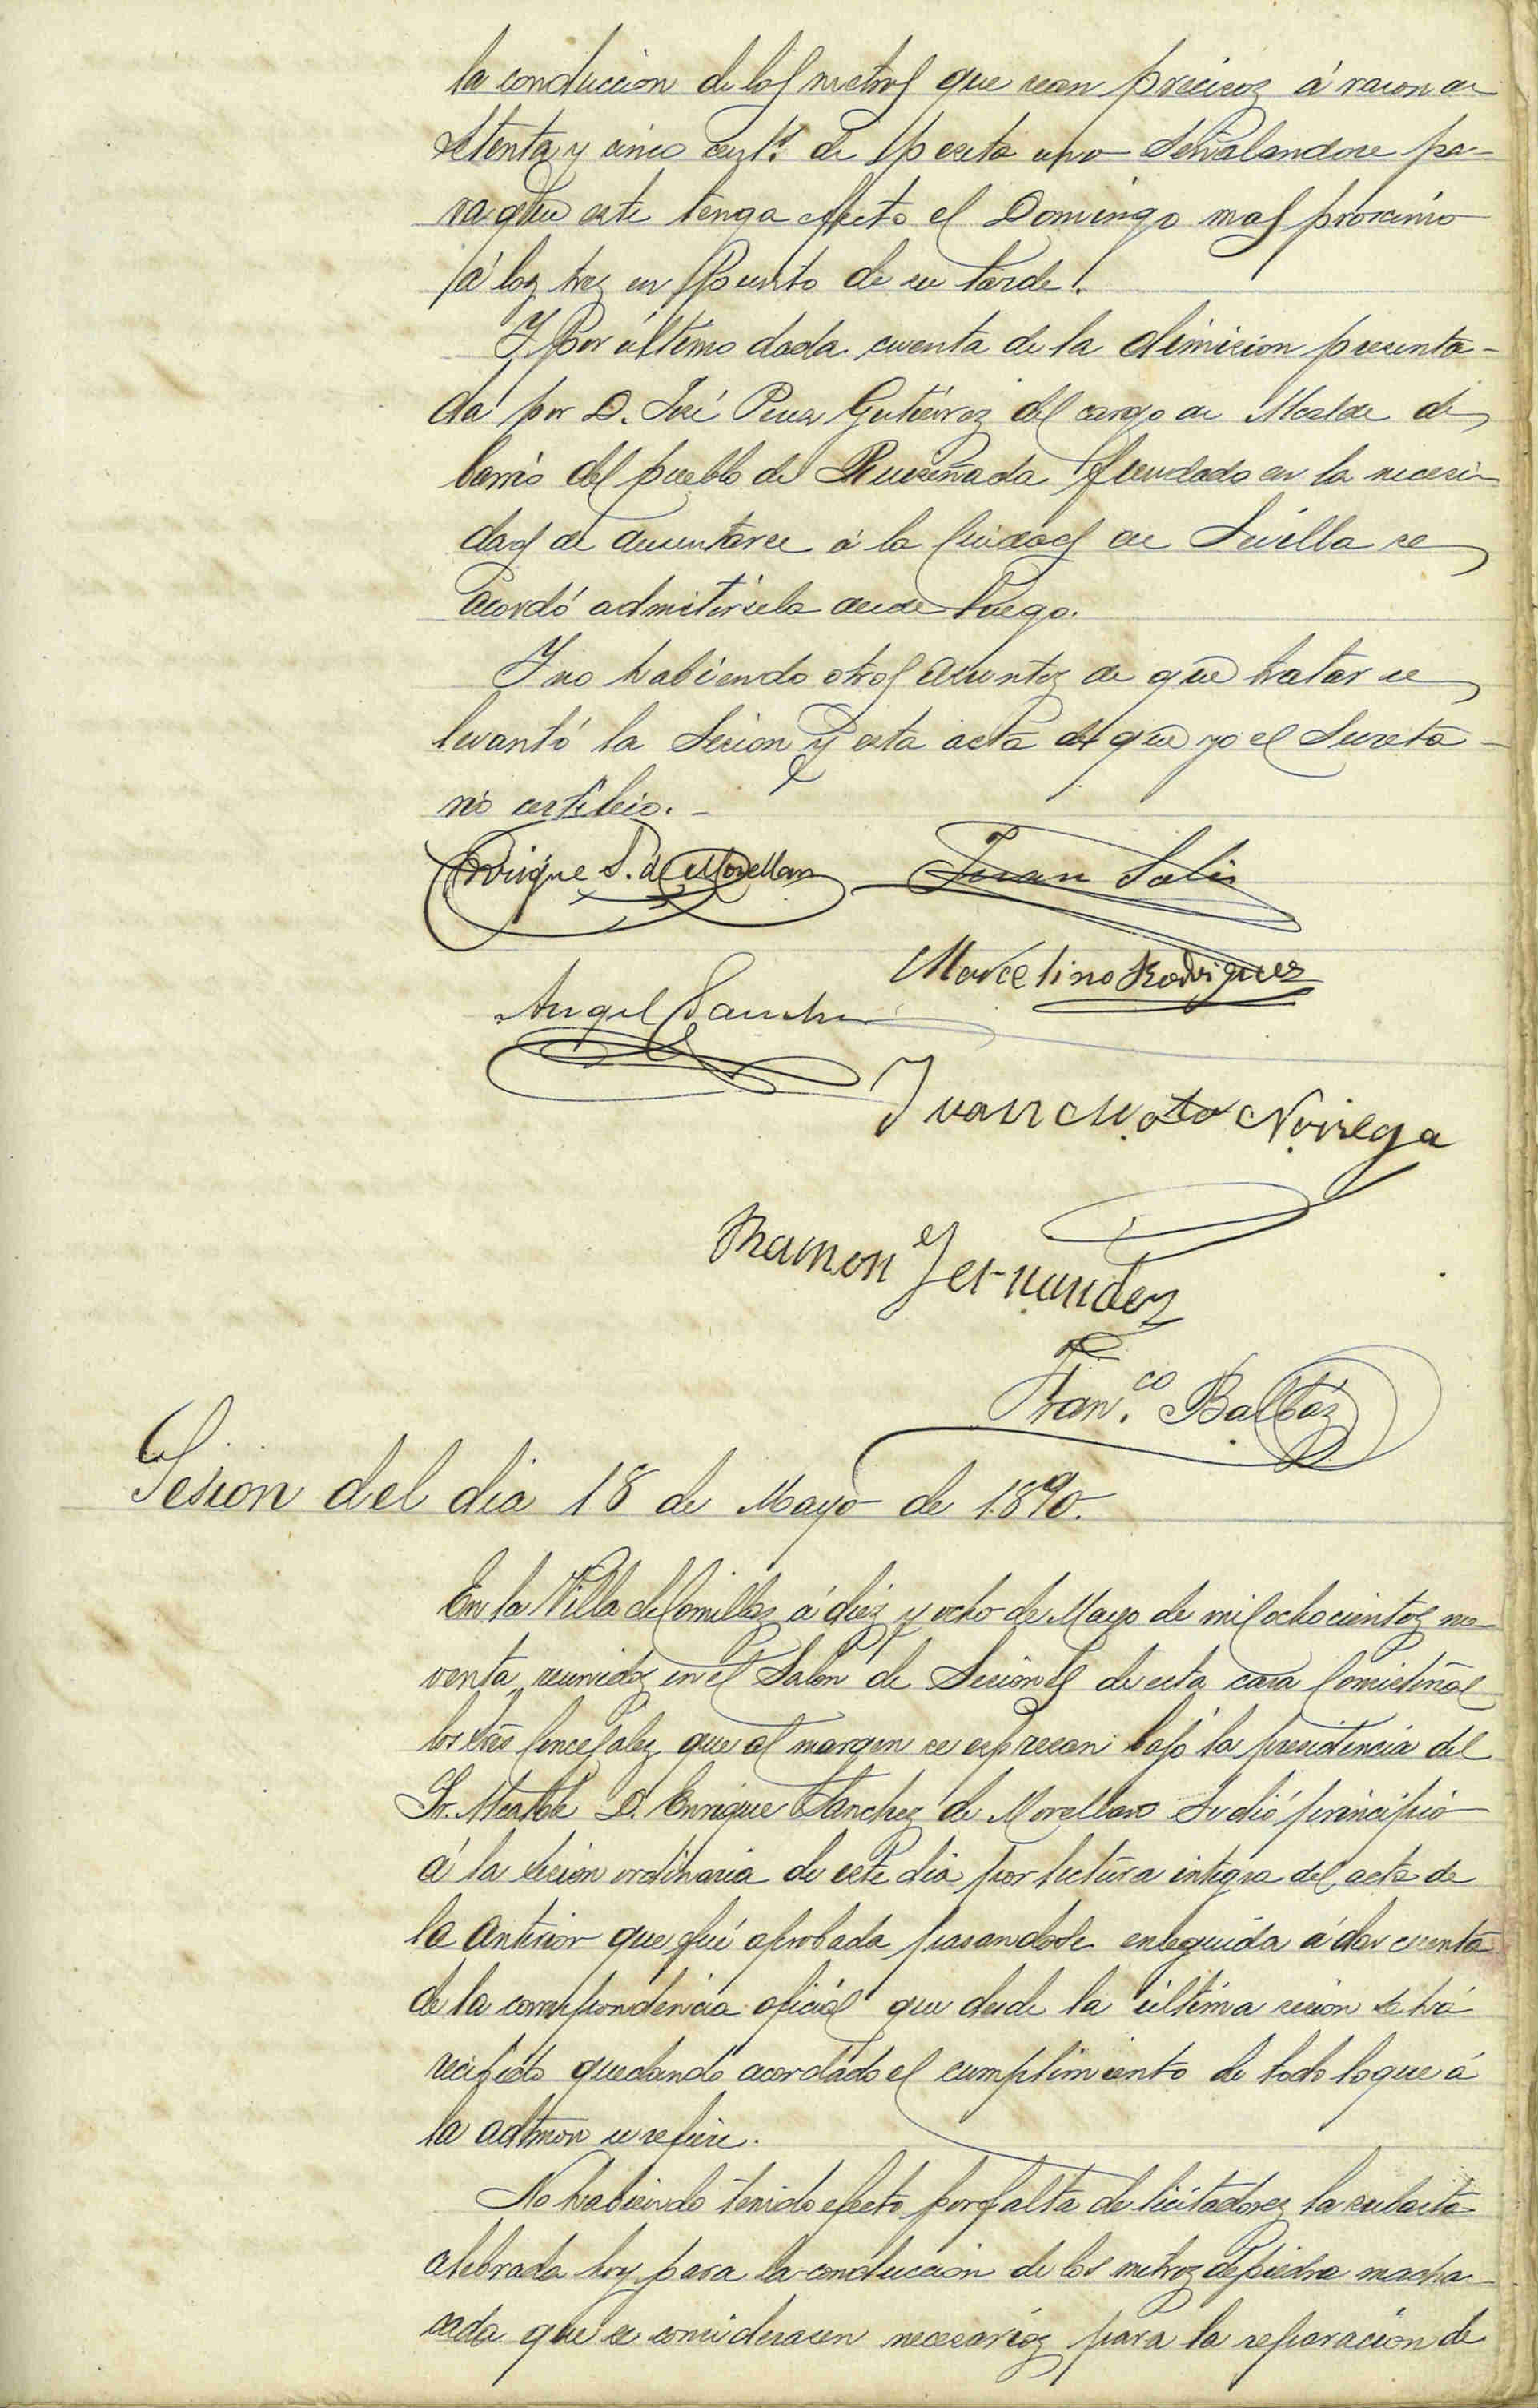 la conduccion de los metros que sean precisos á razon de
setenta y cinco cent.s de peseta uno señalandose pa-
ra que este tenga efecto el Domingo mas proximo
á las tres en punto de su tarde.
Y por último dada cuenta de la dimision presenta-
da por D. José Perez Gutiérrez del cargo de Alcalde de
barrio del pueblo de Ruiseñada fundado en la necesi-
dad de ausentarse á la Ciudad de Sevilla se
acordó admitirsela desde luego.
Y no habiendo otros asuntos de que tratar se
levantó la Sesion y esta acta de que yo el Secreta-
rio certifico.-
Enrique S. de Movellan Juan Solis
Marcelino Rodriguez
Angel Sanchez
Juan Noriega
Ramon Fernandez
Fran.co Balbás
Sesion del dia 18 de Mayo de 1890.
En la Villa de Comillas á diez y ocho de Mayo de mil ochocientos no-
venta, reunidos en el Salon de Sesiones de esta casa Consistorial
los Sres Concejales que al margen se espresan bajo la presidencia del
Sr. Alcalde D. Enrique Sanchez de Movellan se dió principio
á la sesion ordinaria de este dia por lectura integra del acta de
la anterior que fué aprobada pasandose enseguida á dar cuenta
de la correspondencia oficial que desde la última sesion se há
recibido quedando acordado el cumplimiento de todo lo que á
la admon se refiere.
No habiendo tenido efecto por falta de licitadores la subasta
celebrada hoy para la conduccion de los metros de piedra macha-
cada que se considerasen necesarios para la reparacion de